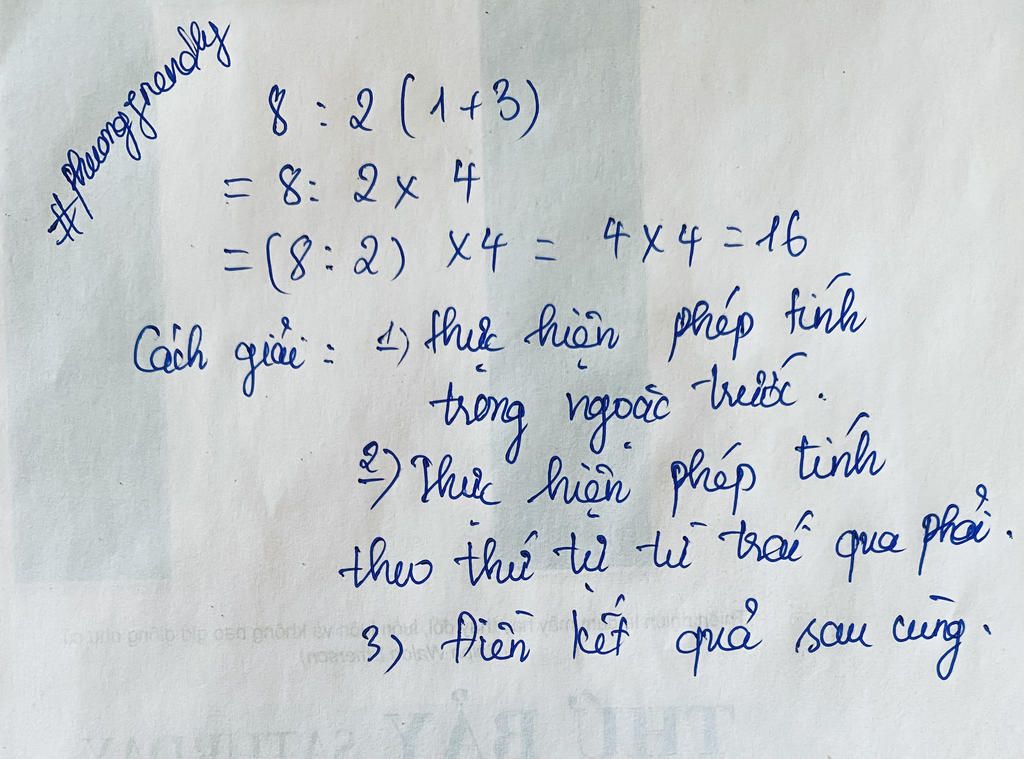 #phuongfriendly
8 : 2 (1+3)
= 8 : 2 x 4
= (8 : 2) x4 = 4 x 4 = 16
Cách giải : 1) thực hiện phép tính
trong ngoặc trước.
2) Thực hiện phép tính
theo thứ tự từ trái qua phải.
3) Điền kết quả sau cùng.
THỨ BẢY SATURDAY